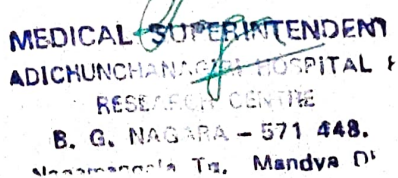 MEDICAL SUPERINTENDENT
ADICHUNCHANAGIRI HOSPITAL &
RESEARCH CENTRE
B. G. NAGARA – 571 448.
Nagamangala Tq. Mandya Di